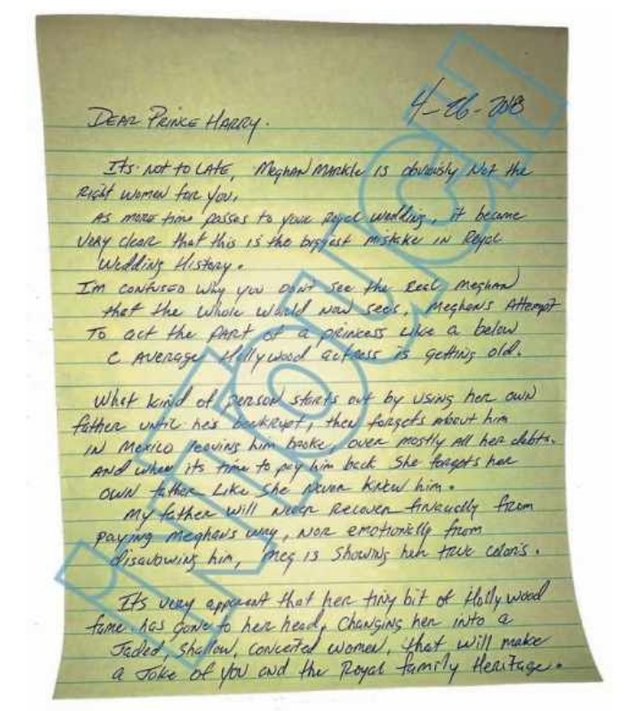 4-26-2018
DEAR PRINCE HARRY.
Its not to LATE, Meghan Markle is obviously Not the
Right women for you,
As more time passes to your Royal wedding, it became
Very clear that this is the biggest mistake in Royal
Wedding History.
Im confused why you dont see the Real Meghan
that the whole world Now sees, Meghans Attempt
To act the part of a princess like a below
C Average Hollywood actress is getting old.
What kind of person starts out by using her own
father until he's bankrupt, then forgets about him
in Mexico leaving him broke, over mostly all her debts.
And when its time to pay him back she forgets her
own father like she never knew him.
My father will never recover financially from
paying Meghans way, Nor emotionally from
disavowing him, Meg is showing her true colors.
Its very apparent that her tiny bit of Hollywood
fame has gone to her head, Changing her into a
Jaded, Shallow, conceited women, that will make
a Joke of you and the Royal family Heritage.
INTOUCH